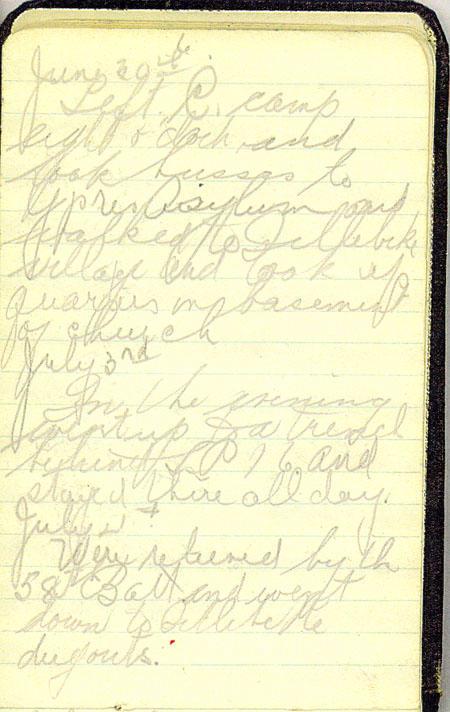 June 29th
Left C. camp
eight o'clock and
took busses to
Ypres Asylum and
walked to Zillebeke
village and took up
quarters in basement
of church
July 3rd
In the evening
went up to a trench
behind S.P. 16 and
stayed there all day.
July 4th
Were relieved by th
58th Batt and went
down to Zillebeke
dugouts.